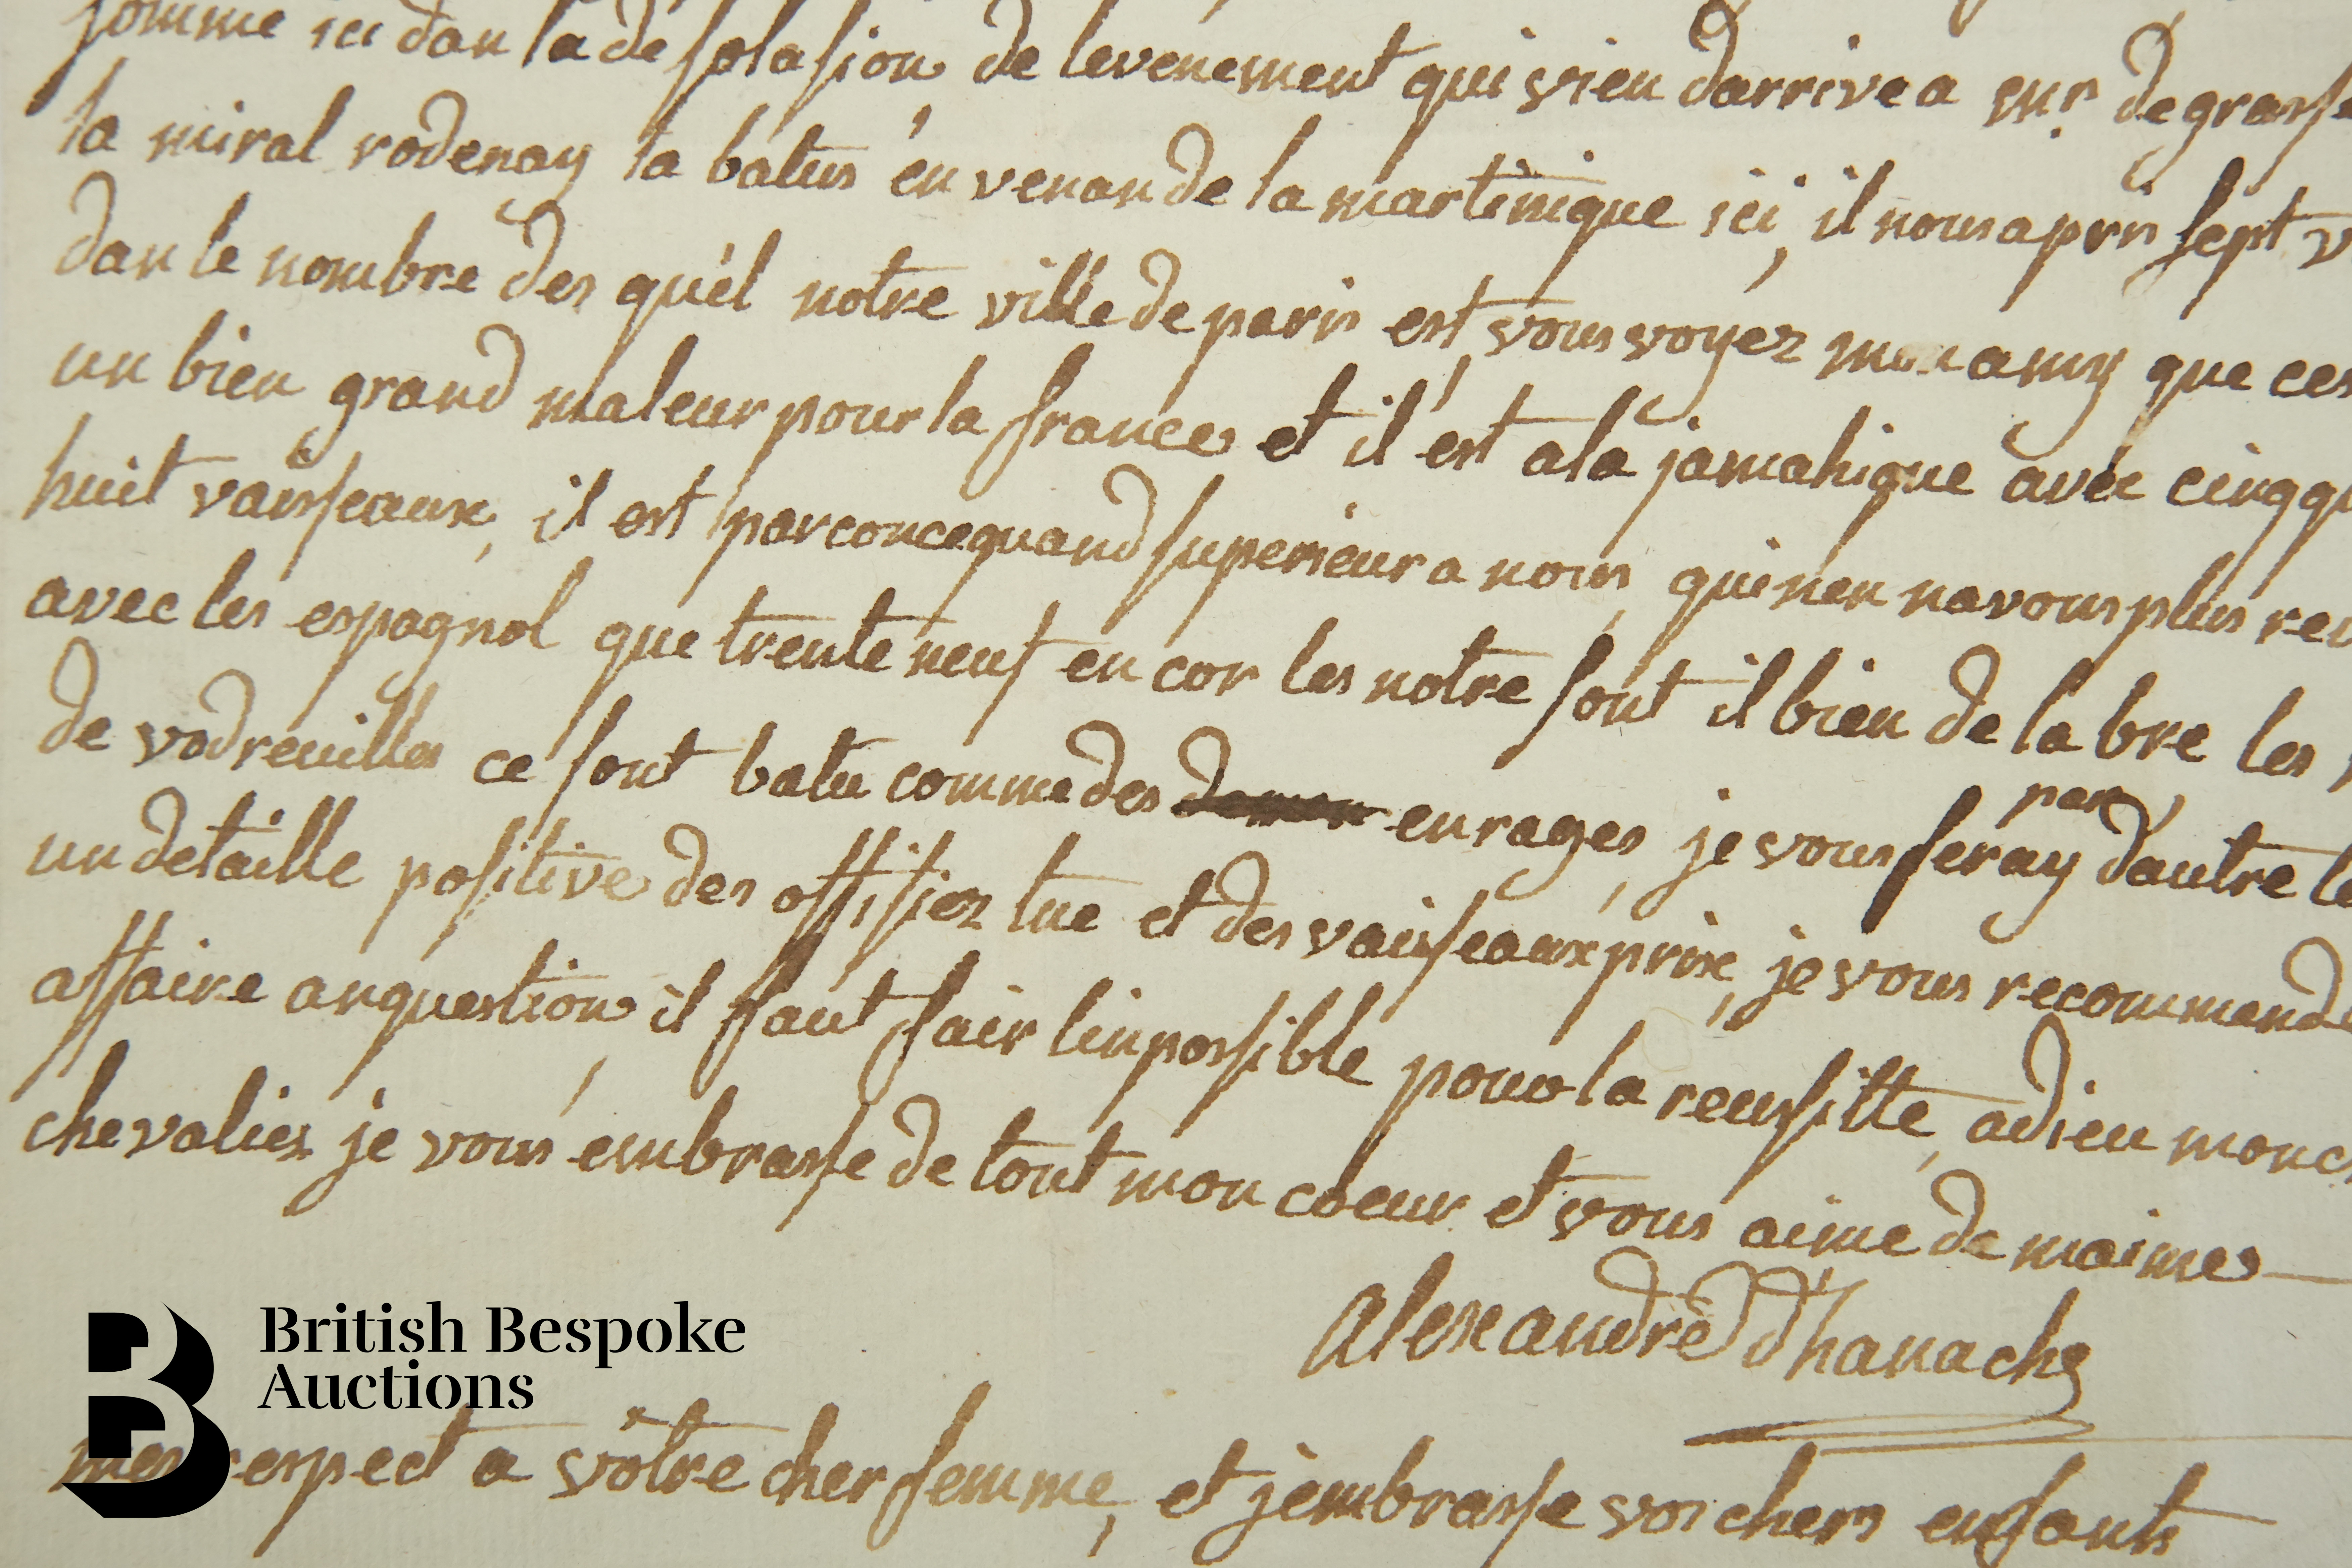 somme ici dan la desolasion de levenement qui vien darrive a mr. degrasse
la miral rodenay la batus en venan de la martinique ici, il nous a pris sept
dan le nombre des quel notre ville de paris est vous voyez mon amy que ces
un bien grand maleur pour la france et il est a la jamahique avec cinq
huit vaisseaux, il est par concequand superieur a nous, qui nen navous plus
avec les espagnol que trente neuf en cor les notre sont il bien de la bre les
de vodreuilles ce sont batu comme des demon enrages, je vous feray par dautre
un detaille positive des offisiez tue et des vaisseaux prix, je vous recommande
affaire an question, il faut fair linpossible pour la reussitte, adieu mon
chevaliez je vous embrasse de tout mon coeur et vous aime de maime
alexandre d'hanache
British Bespoke
Auctions
mes respect a vôtre cher femme, et jembrasse vos chers enfants